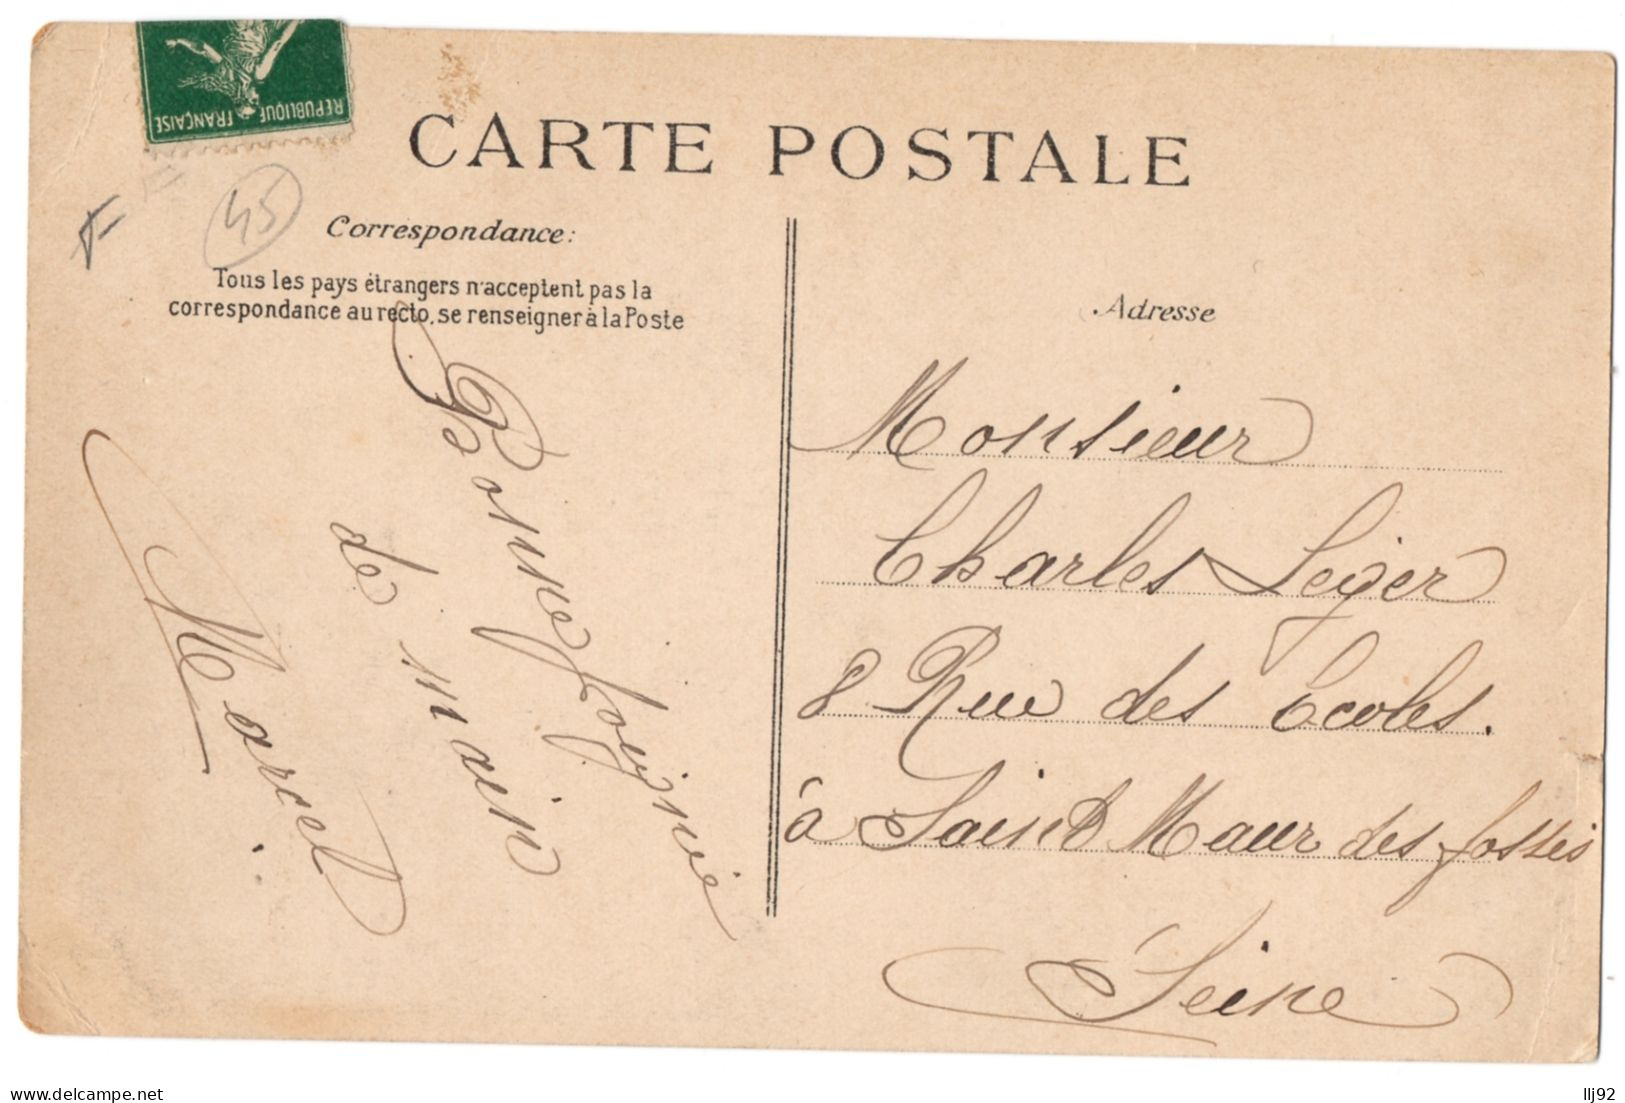 RÉPUBLIQUE FRANÇAISE
CARTE POSTALE
45
Correspondance:
Tous les pays étrangers n'acceptent pas la
correspondance au recto, se renseigner à la Poste
Bonne poignée
de main
Marcel
Adresse
Monsieur
Charles Leger
8 Rue des Ecoles.
à Saint Maur des fossés
Seine
delcampe.net
llj92